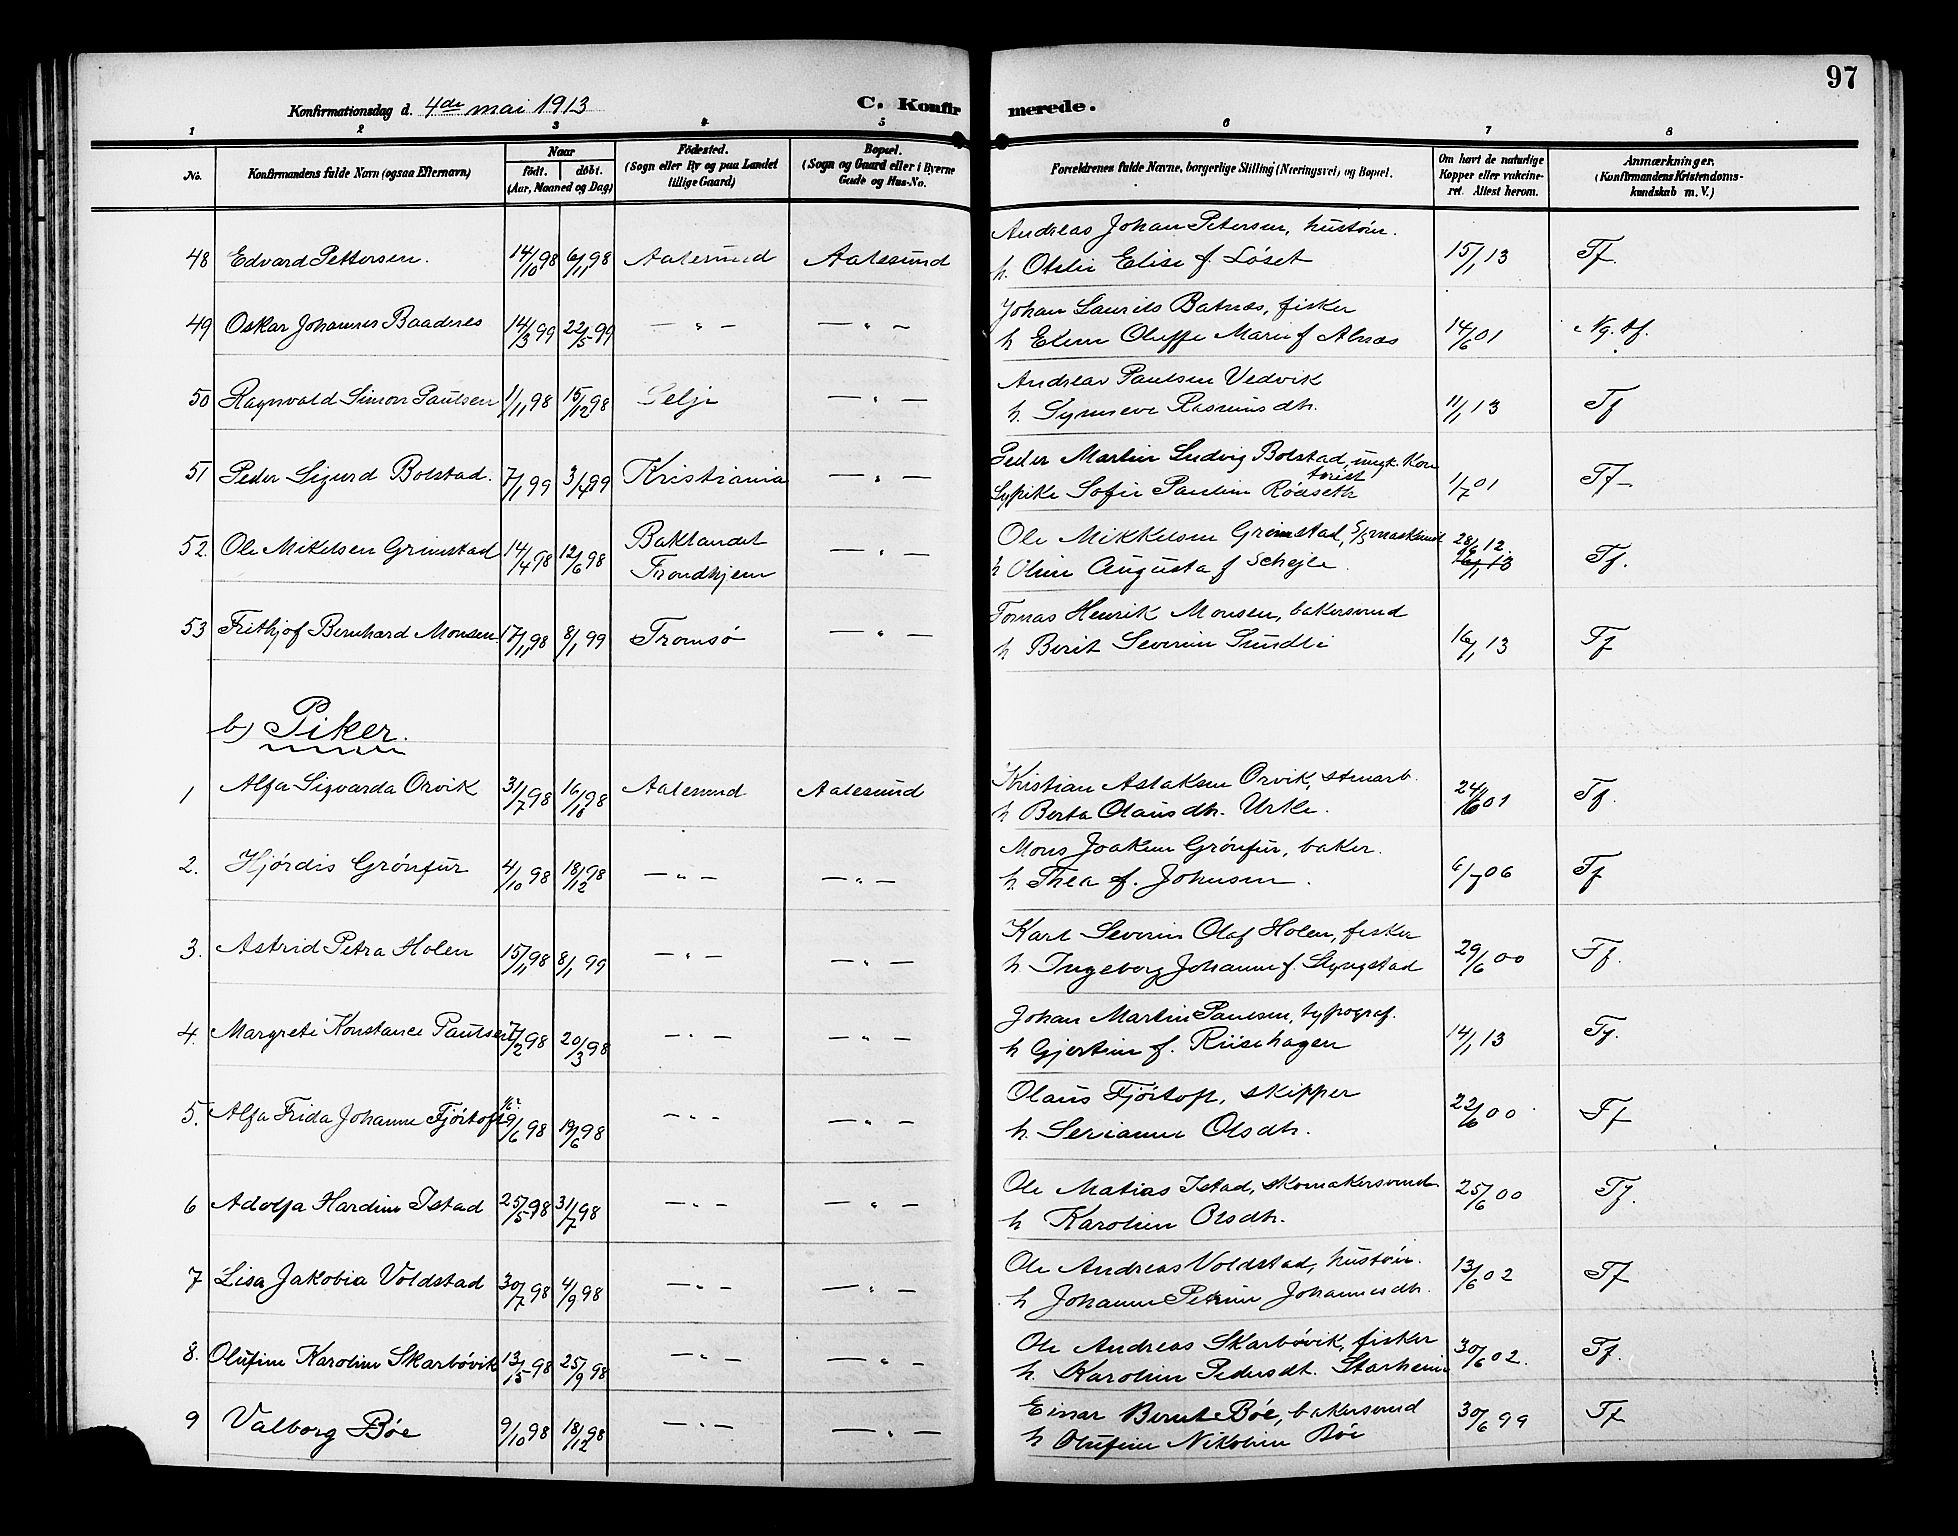 97
Konfirmationsdag d. 4de mai 1913
C. Konfirmerede.
1 2 3 4 5 6 7 8
No.
Konfirmandens fulde Navn (ogsaa Efternavn)
Naar
født. døbt.
(Aar, Maaned og Dag)
Fødested.
(Sogn eller By og paa Landet
tillige Gaard)
Bopæl.
(Sogn og Gaard eller i Byerne
Gade og Hus-No.
Forældrenes fulde Navne, borgerlige Stilling (Næringsvei) og Bopæl.
Om havt de naturlige
Kopper eller vakcine-
ret. Attest herom.
Anmærkninger.
(Konfirmandens Kristendoms-
kundskab m. V.)
Andreas Johan Petersen, hustøm.
48 Edvard Pettersen. 14/10 98 6/11 98 Aalesund Aalesund h. Otelie Elise f. Løset 15/1 13 Tf.
Johan Laurits Batnes, fisker
49 Oskar Johannes Baadnes 14/3 99 22/5 99 — " — — " — h Elen Oluffe Marie f Alnæs 14/6 01 Ng. tf.
Andreas Paulsen Vedvik
50 Ragnvald Simon Paulsen 1/11 98 15/12 98 Selje — " — h. Synneve Rasmusdtr. 11/1 13 Tf
Peder Martin Ludvig Bolstad, ungk. Kon
torist
51 Peder Sigurd Bolstad. 7/1 99 3/4 99 Kristiania — " — Sypike Sofie Pauline Rødseth 1/7 01 Tf
Ole Mikkelsen Grimstad, S/S maskinist 28/6 12.
52. Ole Mikelsen Grimstad 14/4 98 12/6 98 Baklandet
Trondhjem — " — h Oline Augusta f Schejle. 16/1 13 Tf.
Tomas Henrik Monsen, bakersvend
53 Frithjof Bernhard Monsen 17/11 98 8/1 99 Tromsø — " — h Berit Severine Sundli 16/1 13 Tf
b) Piker.
Kristian Aslaksen Orvik, stenarb.
1 Alfa Sigvarda Orvik 31/7 98 16/10 98 Aalesund Aalesund h Berta Olausdtr. Urke. 24/6 01 Tf.
Mons Joakim Grønfur, baker.
2. Hjørdis Grønfur 4/10 98 18/12 98 — " — — " — h. Thea f. Johnsen. 6/7 06 Tf
Karl Severin Olaf Holen, fisker
3. Astrid Petra Holen 15/11 98 8/1 99 — " — — " — h Ingeborg Johanne f. Slyngstad 29/6 00 Tf.
Johan Martin Paulsen, typograf.
4. Margrete Konstance Paulsen 7/2 98 20/3 98 — " — — " — h Gjertine f. Riisehagen 14/1 13 Tf.
Olaus Fjørtoft, skipper
5. Alfa Frida Johanne Fjørtoft 9/6 98 19/6 98 — " — — " — h. Serianne Olsdtr. 22/6 00 Tf
Ole Matias Istad, skomakersvend
6 Adolfa Hardine Istad 25/5 98 31/7 98 — " — — " — h Karoline Olsdtr. 25/6 00 Tf.
Ole Andreas Voldstad, hustøm.
7 Lisa Jakobia Voldstad 30/7 98 4/9 98 — " — — " — h Johanne Petrine Johannesdtr. 13/6 02 Tf
Ole Andreas Skarbøvik, fisker
8. Olufine Karoline Skarbøvik 13/5 98 25/9 98 — " — — " — h. Karoline Pedersdt. Starheim 30/6 02. Tf.
Einar Bernt Bøe, bakersvend
9 Valborg Bøe 9/10 98 18/12 98 — " — — " — h Olufine Nikoline Bøe 30/6 99 Tf